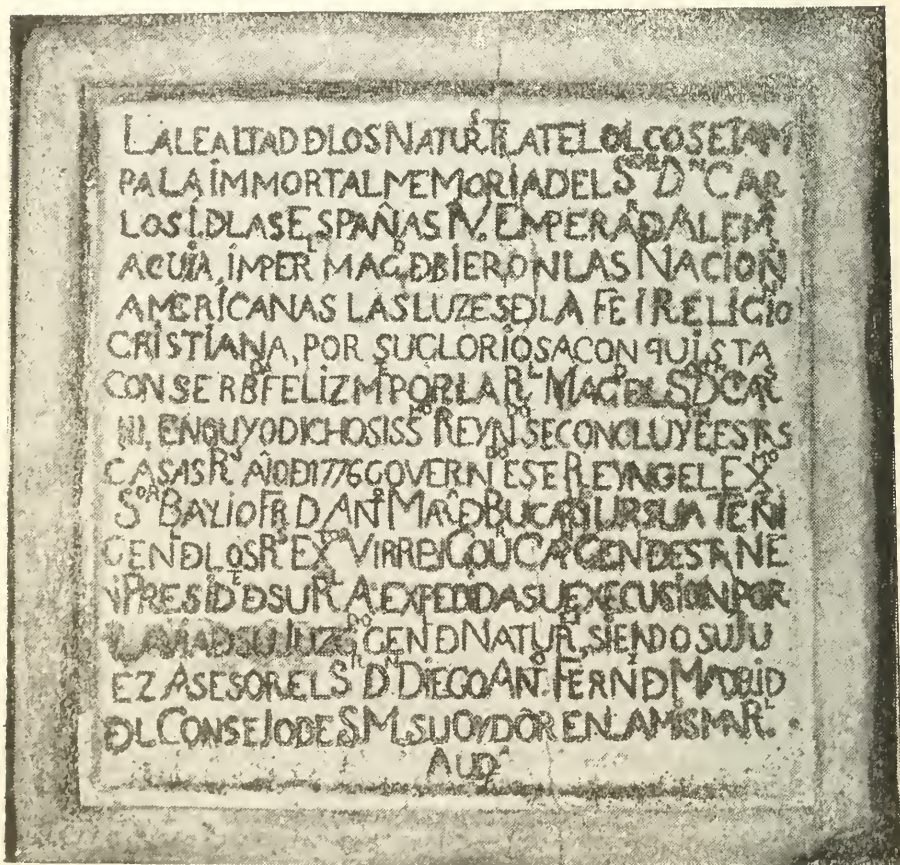 LA LEALTAD ĐLOS NATUR.S TLATELOLCOS ETAM
PA LA ÍMMORTAL MEMORIA DEL S.OR D.N CAR
LOS I. ĐLAS ESPAÑAS IV. EMPERA.R Đ ALEM.A
A CUÏA, ÍMPER.L MAG.D ĐBIERON LAS NACION.S
AMERÍCANAS LAS LUZES ĐLA FE I RELIGIO.N
CRÍSTIANA, POR SU GLORÍOSA CONQUISTA
CONSERB.DA FELIZM.TE POR LA R.L MAG.D DEL S.R D.N CAR.S
III, EN CUYO DICHOSISS.MO REYN.DO SE CONCLUYE.N ESTAS
CASAS R.S AÑO Đ 1776 GOVERN.DO ESTE REYNO EL EX.MO
S.OR BAYLIO FR. D. AN.TO MAR.A Đ BUCARELI URSUA TEÑ.I
GEN. Đ LOS R.S EX.TOS VIRREI GO.R CAP. GEN. DESTA NE
I PRESID.TE Đ SU R.L A.A EXPEDIDA SU EXECUSION POR
LA VIA Đ SU JUZG.DO GEN. Đ NATUR.S, SIENDO SU JU
EZ ASESOR EL S.R D.N DIEGO AN.TO FERN.Z Đ MADRID
ĐL CONSEJO DE S M. SU OYDOR EN LA MISMA R.L
AUD.A